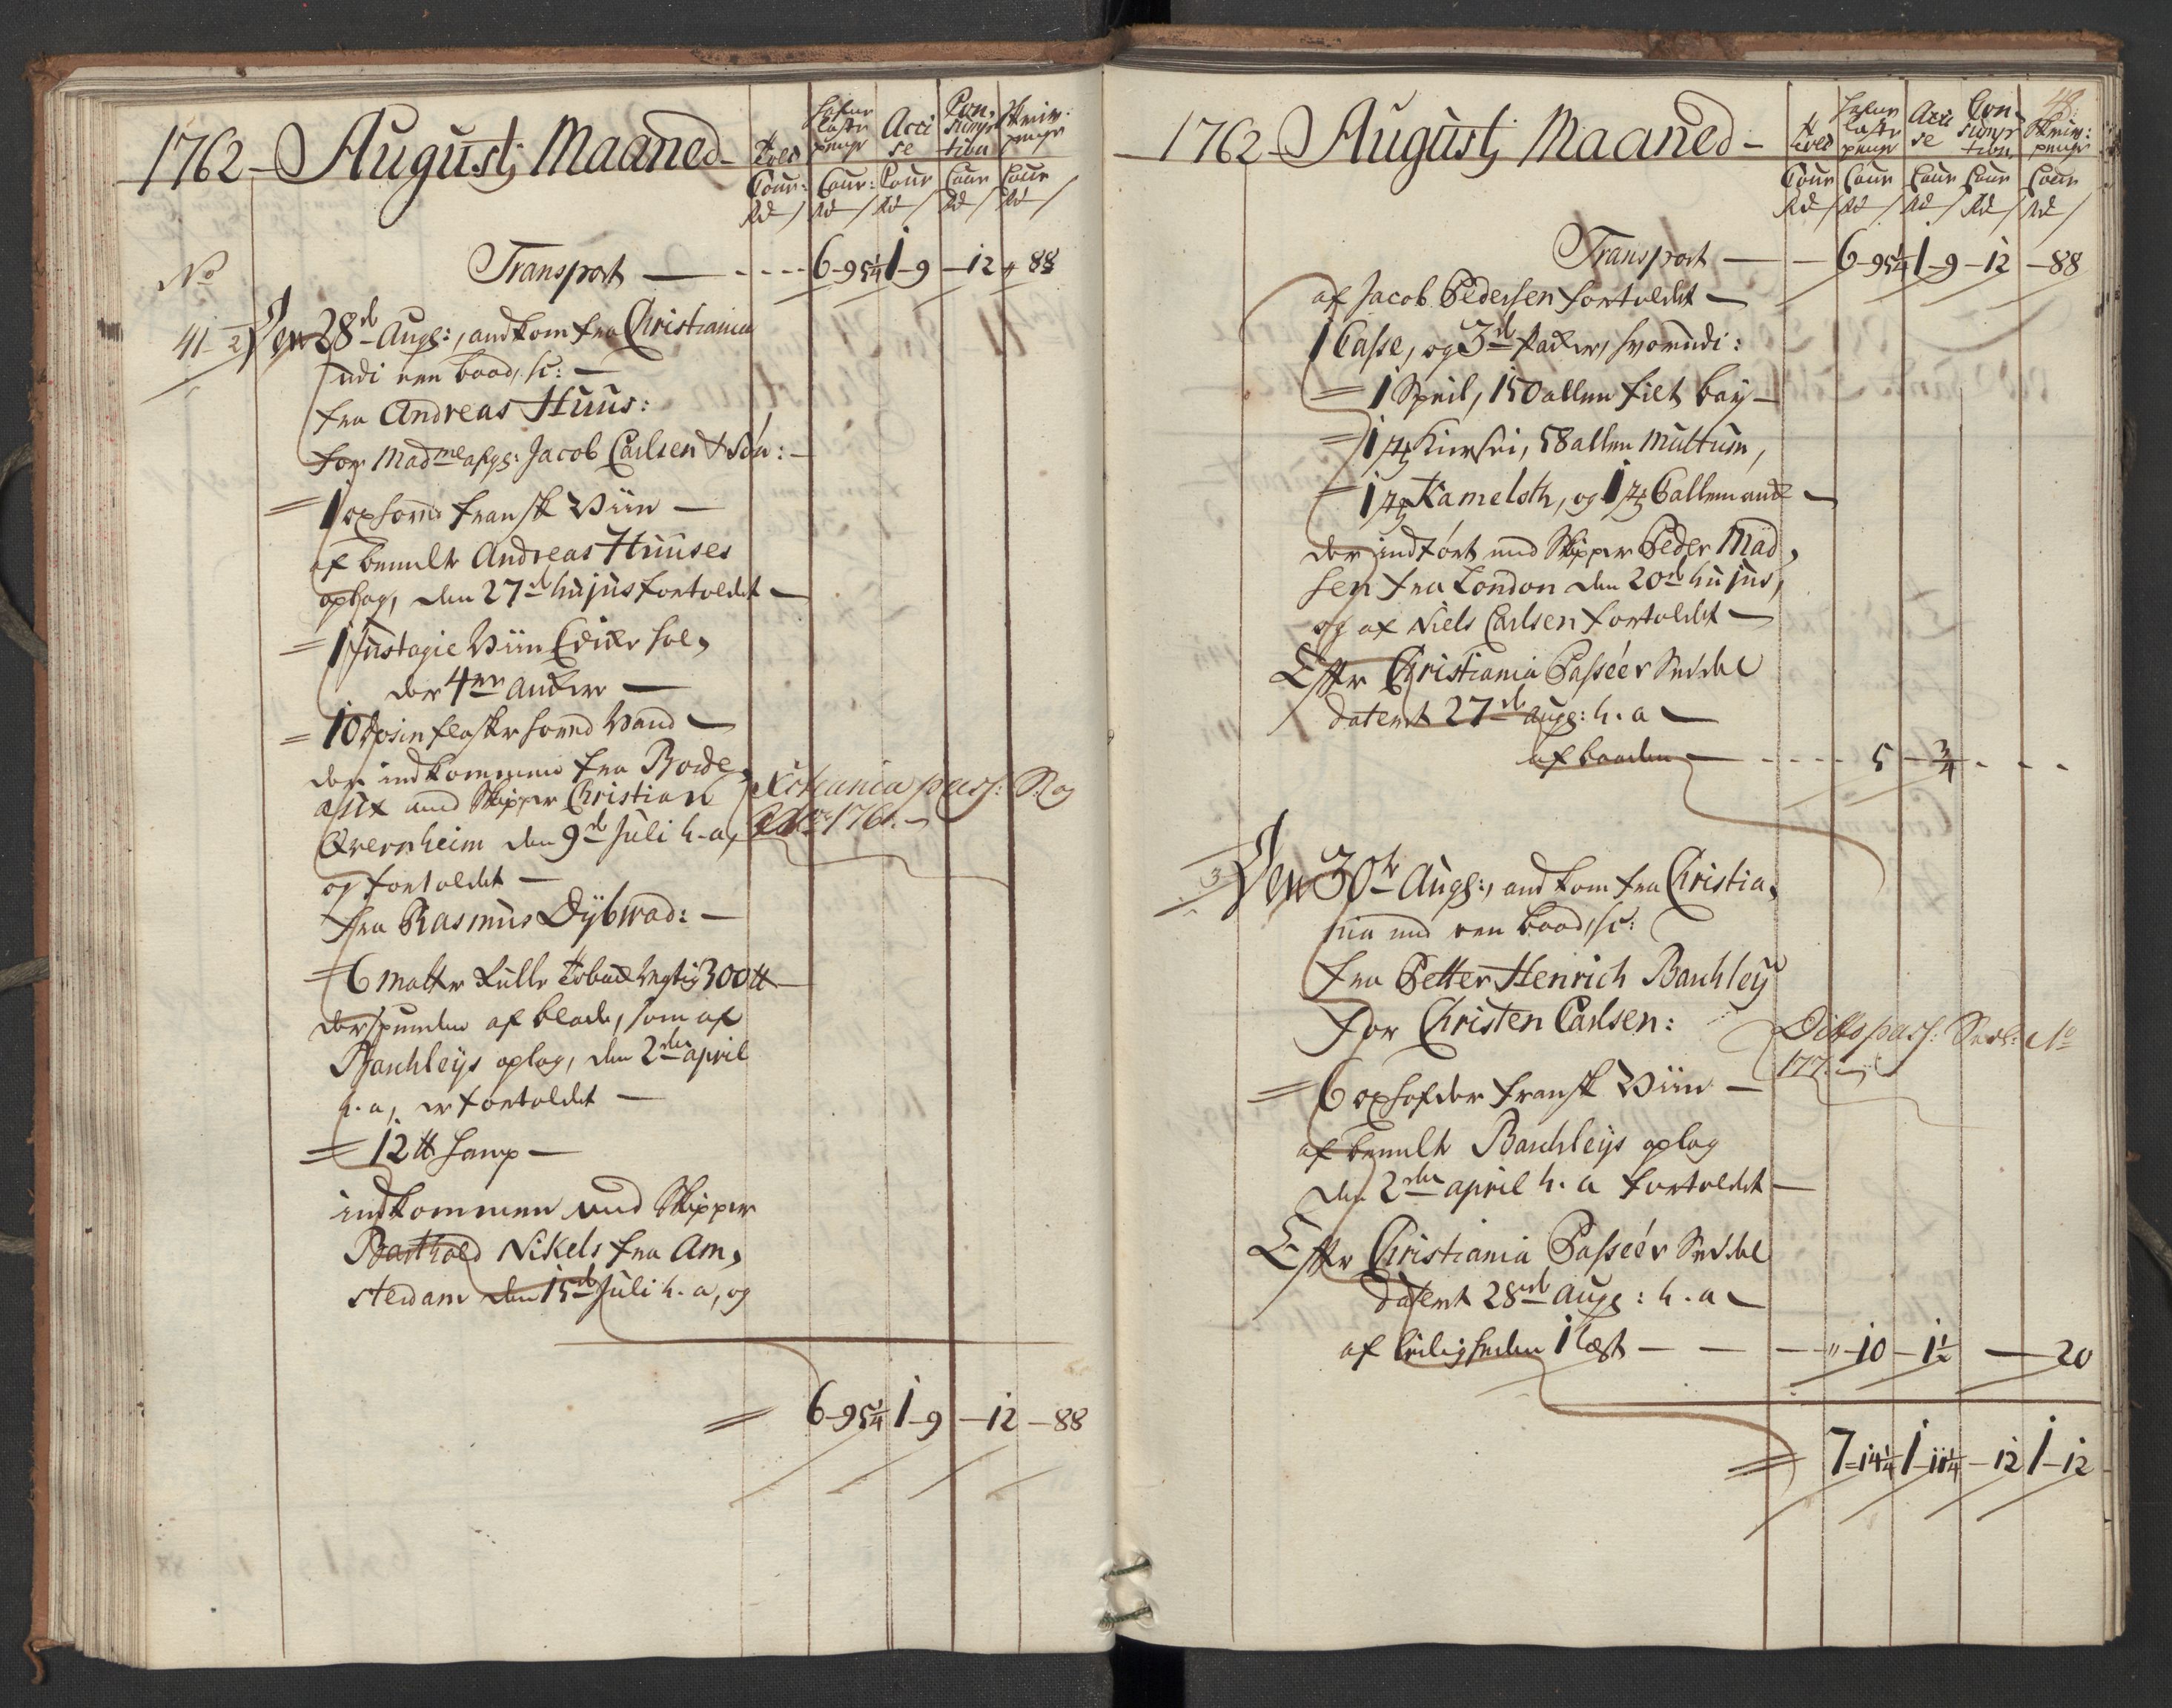 1762 – Augustj Maaned –
Told
Hafne
laste
penge
Acci
se
Con,
sump
tion
Skriv:
penge
Cour: Cour: Cour Cour Cour
Rd / Rd / Rd / Rd / Rd /
No
Transport — - - - - 6-95¼ 1-9 -12 - 88
41-2 Den 28de Augs:, andkom fra Christiania
udi een baad, sc: —
fra Andreas Huus:
for Madme afgs: Jacob Carlsen & Sön: –
= 1 oxhoved fransk Viin —
af bemelte Andreas Huuses
oplag, den 27de hujus fortoldet —
= 1 fustagie Viin Edike hol,
der 4re anker —
= 10 dosin flasker sound Vand —
der indkommen fra Borde,
aux med Skipper Christian
Qvernheim den 9de Juli h. a,
og fortoldet —
Xstiania pass: S: og
1761. —
fra Rasmus Dybwad: —
= 6 matter Rulle Toback vegtig 300 ℔ —
der spunden af blade, som af
Bauchleys oplag, den 2den april
h. a, er fortoldet —
= 12 ℔ hamp —
indkommen med Skipper
Barthold Nikels fra Am,
sterdam den 15de Juli h. a, og
= 6-95¼ 1-9 -12 -88
48.
1762 – Augustj Maaned –
Told
Hafne
laste
penge
Acci
se
Con,
sump
tion
Skriv:
penge
Cour Cour Cour Cour Cour
Rd / Rd / Rd / Rd / Rd /
Transport — - 6-95¼ 1-9 -12 -88
af Jacob Pedersen fortoldet —
1 Casse, og 3de Packer, hvorudi:
= 1 Speil, 150 allen fiet bay —
= 1 st Kirsei, 58 allen Multum,
= 1 st Kameloth, og 1 st Callemank —
der indfört med Skipper Peder Mad,
sen fra London den 20de hujus,
og af Niels Carlsen fortoldet —
Efter Christiania Passeer Seddel
dateret 27de augs: h. a —
af baaden — - - - - 5 - ¾ - - -
3 Den 30te Augs:, andkom fra Christia,
nia med een baad, sc:
fra Petter Henrich Bauchley
for Christen Carlsen:
Ditto pass: Sedl: No
177.
= 6 oxhofder fransk Viin —
af bemelte Bauchleys oplag
den 2den april h. a fortoldet —
Efter Christiania Passeer Seddel
dateret 28de augs: h. a —
af leiligheden 1 læst — — — " -10 -1½ — 20
= 7-14¼ 1-11¼ -12 1-12